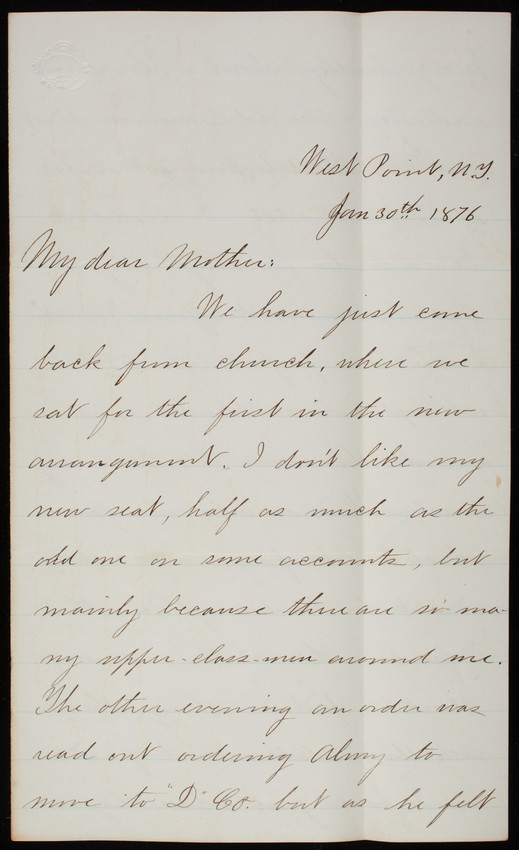 West Point, N.Y.
Jan 30th 1876
My dear Mother:
We have just come
back from church, where we
sat for the first in the new
arrangement. I don't like my
new seat, half as much as the
old one on some accounts, but
mainly because there are so ma-
ny upper-class-men around me.
The other evening an order was
read out ordering Almy to
move to "D" Co. but as he felt